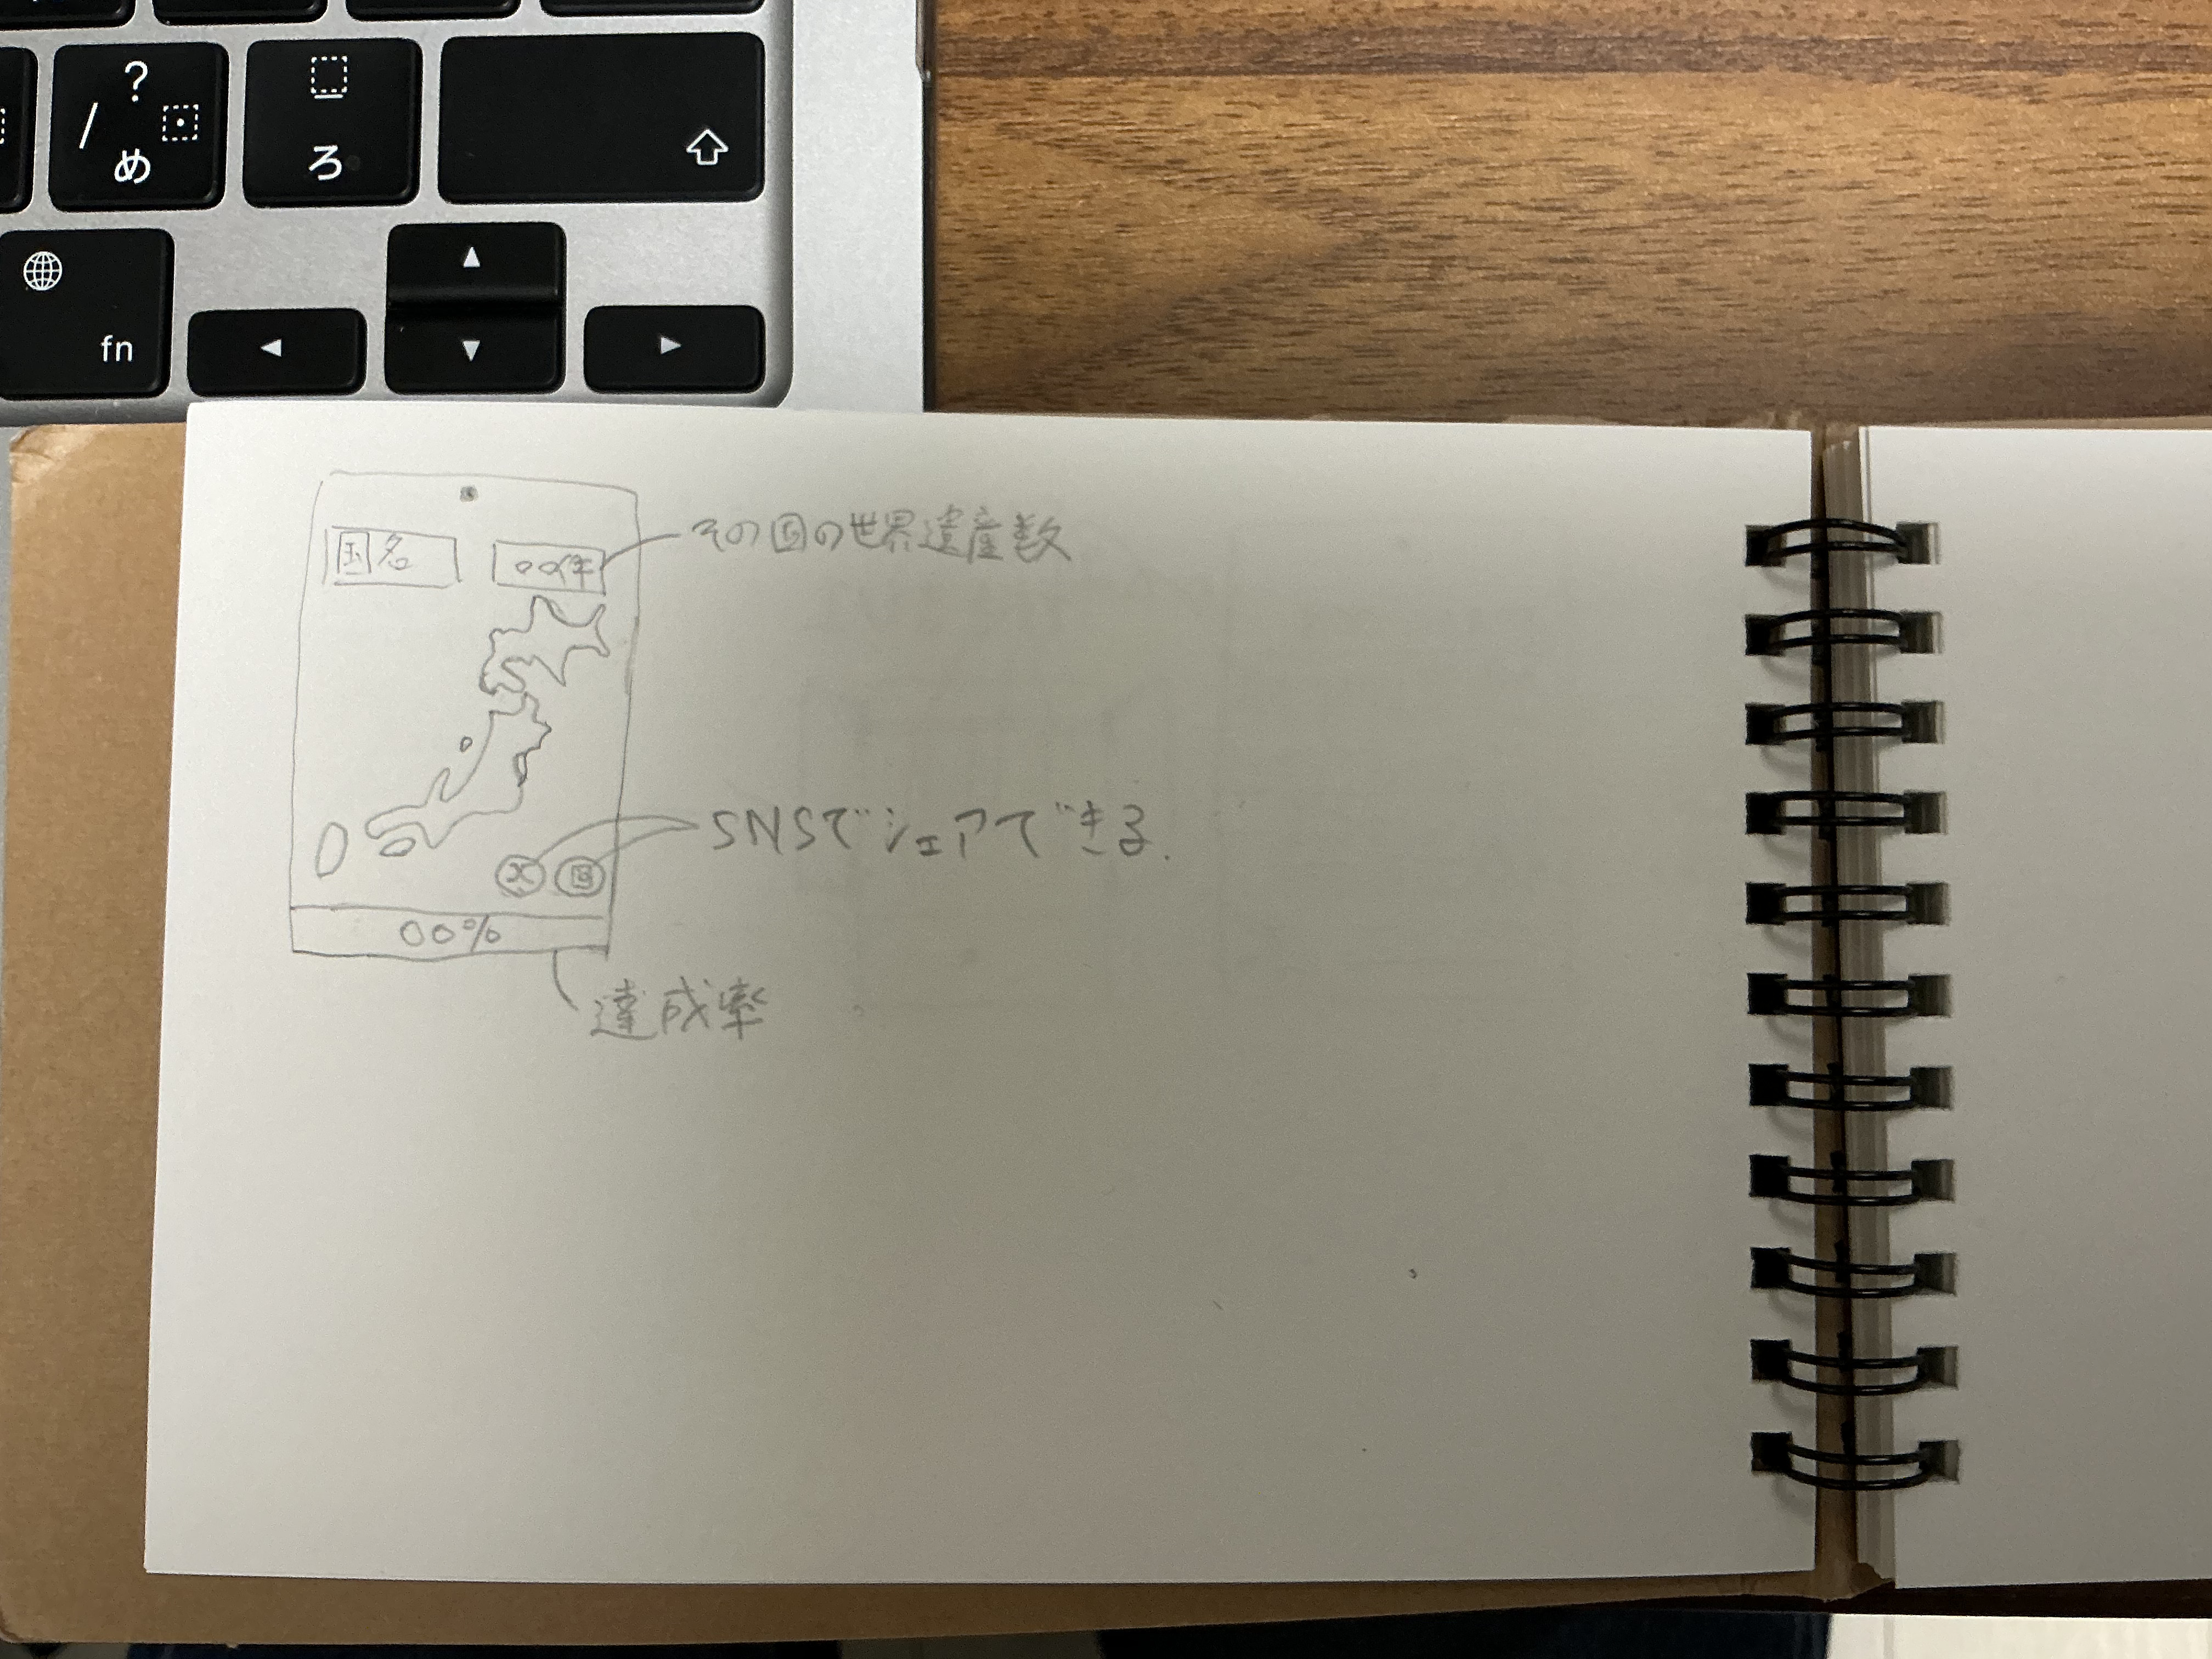 ?
/
め
ろ
fn
国名
○○件
その国の世界遺産数
SNSでシェアできる.
X
○○%
達成率